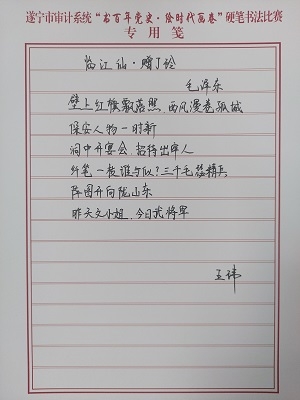 遂宁市审计系统“书百年党史·绘时代画卷”硬笔书法比赛
专用笺
临江仙·赠丁玲
毛泽东
壁上红旗飘落照，西风漫卷孤城
保安人物一时新
洞中开宴会，招待出牢人
纤笔一枝谁与似？三千毛瑟精兵
阵图开向陇山东
昨天文小姐，今日武将军
王玮